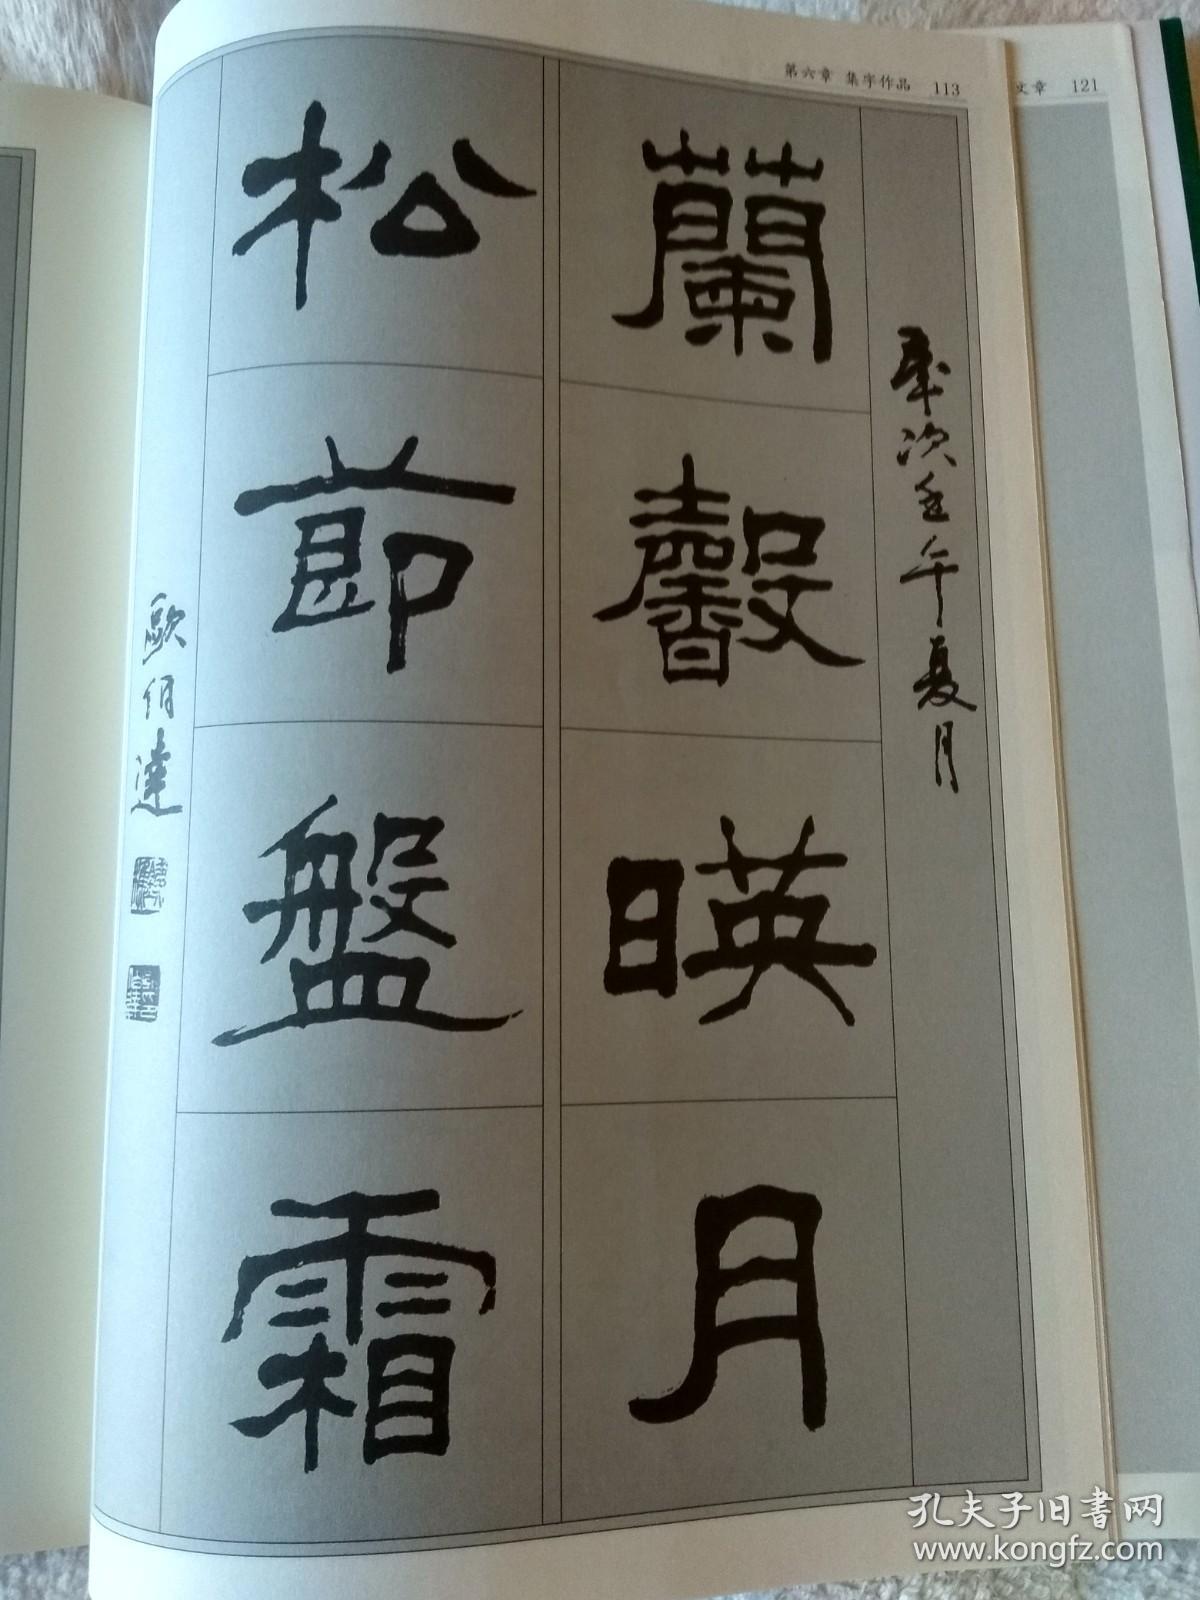 第六章 集字作品 113
文章 121
歲次壬午夏月
蘭馨暎月
松節盤霜
歐伯達
孔夫子旧书网
www.kongfz.com